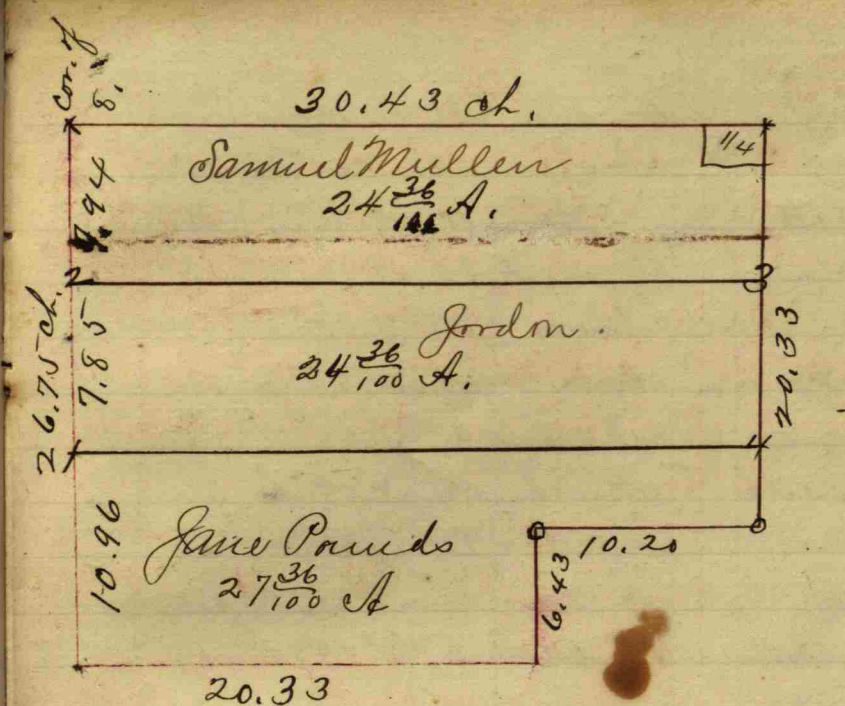 cor. of
8.
30.43 ch.
1/4
Samuel Mullen
24 36/100 A.
7.94
26.75 ch.
7.85
Jordon.
24 36/100 A.
20.33
10.96
Jane Pounds
27 36/100 A
10.20
6.43
20.33